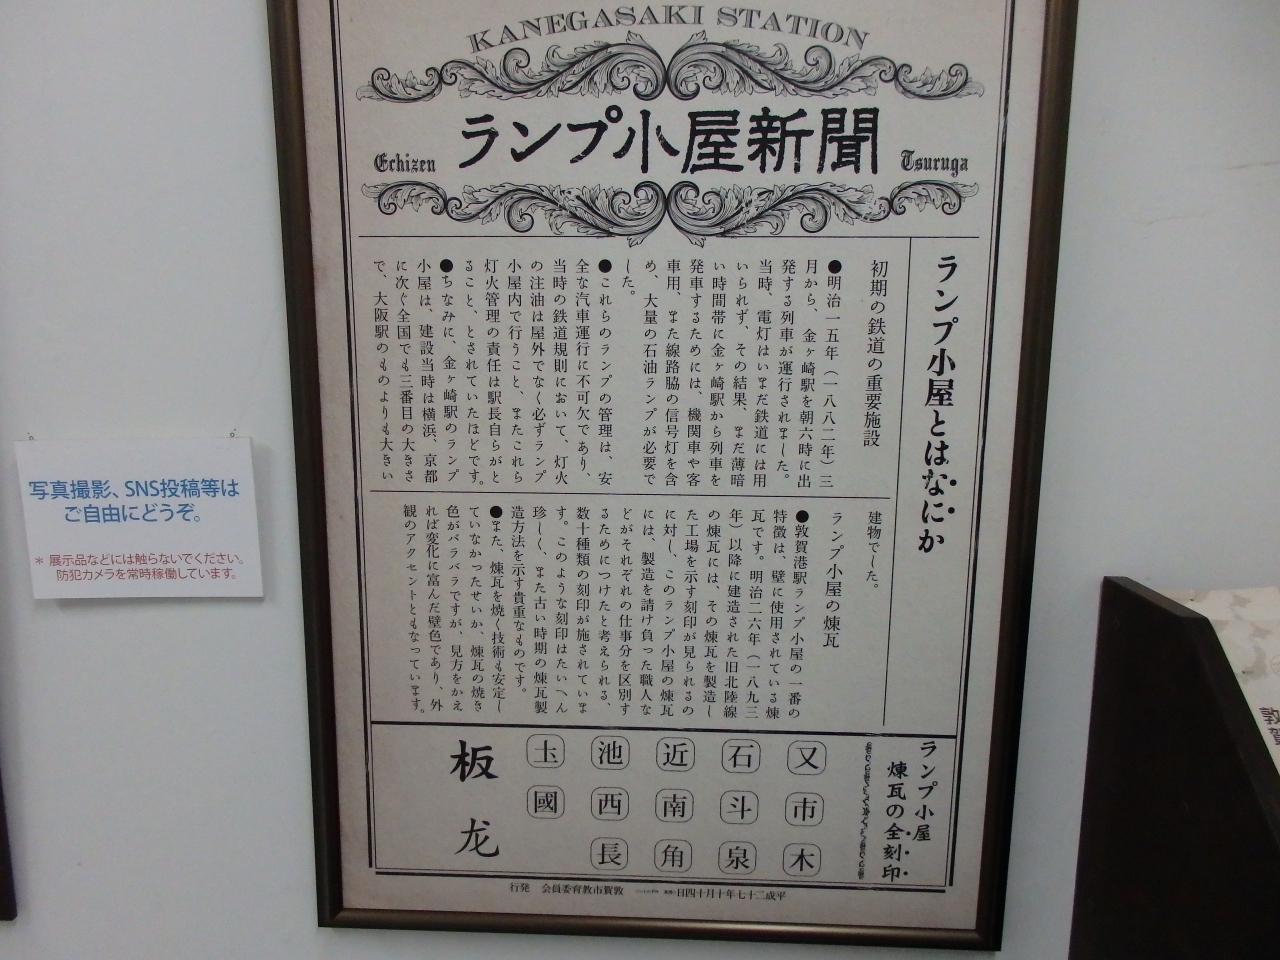 KANEGASAKI STATION
ランプ小屋新聞
Echizen
Tsuruga
ランプ小屋とはなにか
初期の鉄道の重要施設
●明治一五年（一八八二年）三
月から、金ヶ崎駅を朝六時に出
発する列車が運行されました。
当時、電灯はいまだ鉄道には用
いられず、その結果、まだ薄暗
い時間帯に金ヶ崎駅から列車を
発車するためには、機関車や客
車用、また線路脇の信号灯を含
め、大量の石油ランプが必要で
した。
●これらのランプの管理は、安
全な汽車運行に不可欠であり、
当時の鉄道規則において、灯火
の注油は屋外でなく必ずランプ
小屋内で行うこと、またこれら
灯火管理の責任は駅長自らがと
ること、とされていたほどです。
●ちなみに、金ヶ崎駅のランプ
小屋は、建設当時は横浜、京都
に次ぐ全国でも三番目の大きさ
で、大阪駅のものよりも大きい
建物でした。
ランプ小屋の煉瓦
●敦賀港駅ランプ小屋の一番の
特徴は、壁に使用されている煉
瓦です。明治二六年（一八九三
年）以降に建造された旧北陸線
の煉瓦には、その煉瓦を製造し
た工場を示す刻印が見られるの
に対し、このランプ小屋の煉瓦
には、製造を請け負った職人な
どがそれぞれの仕事分を区別す
るためにつけたと考えられる、
数十種類の刻印が施されていま
す。このような刻印はたいへん
珍しく、また古い時期の煉瓦製
造方法を示す貴重なものです。
●また、煉瓦を焼く技術も安定し
ていなかったせいか、煉瓦の焼き
色がバラバラですが、見方をかえ
れば変化に富んだ壁色であり、外
観のアクセントともなっています。
ランプ小屋
煉瓦の全刻印
又 市 木
石 斗 泉
近 南 角
池 西 長
圡 國
板 龙
行発 会員委育教市賀敦
日四十月十年七十二成平
写真撮影、SNS投稿等は
ご自由にどうぞ。
＊展示品などには触らないでください。
防犯カメラを常時稼働しています。
敦賀